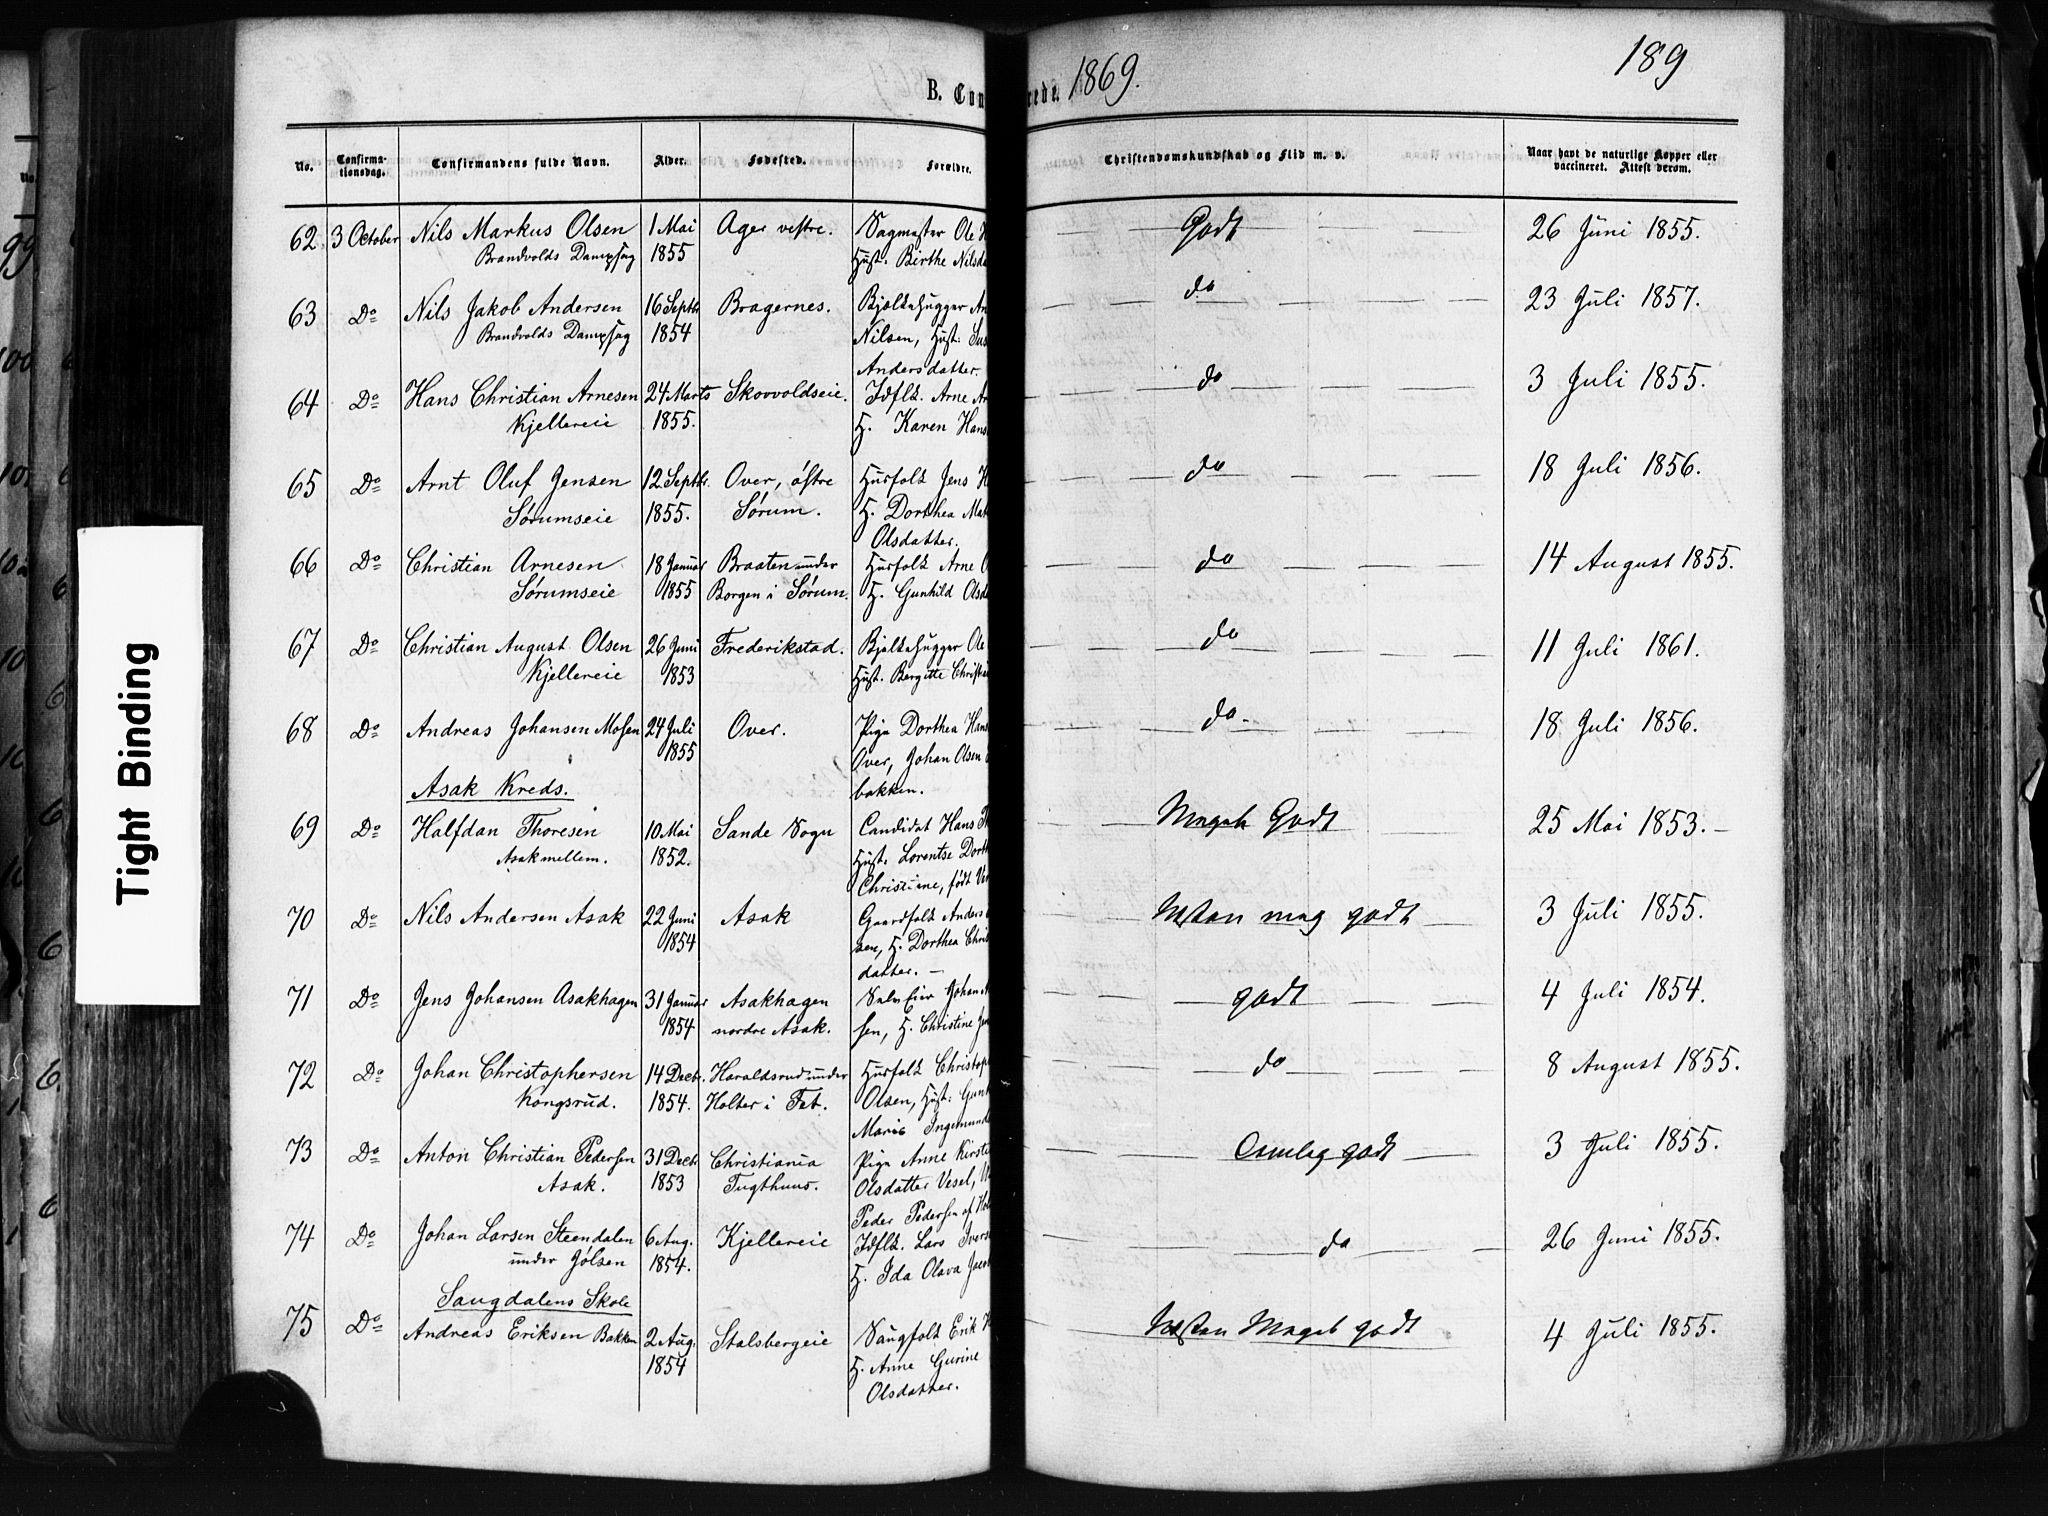 189
B. Con rede. 1869.
No. Confirma-tionsdag. Confirmandens fulde Navn. Alder. Fødested. Forældre. Christendomskundskab og Flid m. v. Naar havt de naturlige Kopper eller vaccineret. Attest derom.
62 3 October Nils Markus Olsen 1 Mai Ager vestre. Sagmester Ole Godt 26 Juni 1855.
Brandvolds Dampsag 1855 Hust. Birthe Nilsda
63 Do Nils Jakob Andersen 16 Septbr. Bragernes. Bjelkehugger An do 23 Juli 1857.
Brandvolds Dampsag 1854 Nilsen, Hust: Sus
Andersdatter.
64 Do Hans Christian Arnesen 24 Marts Skovvoldseie. Idflk. Arne Ar do 3 Juli 1855.
Kjellereie 1855. H. Karen Hans
65 Do Arnt Oluf Jensen 12 Septbr. Over, østre Husfolk Jens H do 18 Juli 1856.
Sørumseie 1855. Sørum. H. Dorthea Mat
Olsdatter.
66 Do Christian Arnesen 18 Januar Braaten under Husfolk Arne O do 14 August 1855.
Sørumseie 1855 Borgen i Sørum. H. Gunhild Olsda
67 Do Christian August Olsen 26 Juni Frederikstad. Bjelkehugger Ole do 11 Juli 1861.
Kjellereie 1853 Hust. Bergitte Christi
68 Do Andreas Johansen Mosen 24 Juli Over. Pige Dorthea Hans do 18 Juli 1856.
1855 Over, Johan Olsen
Asak Kreds. bakken.
69 Do Halfdan Thoresen 10 Mai Sande Sogn Candidat Hans Th Meget Godt 25 Mai 1853.
Asak mellem. 1852. Hust. Lorentse Dorth
Christiane, født Ve
70 Do Nils Andersen Asak 22 Juni Asak Gaardfolk Anders Næsten meg godt 3 Juli 1855.
1854 sen, H. Dorthea Chris
datter. —
71 Do Jens Johansen Asakhagen 31 Januar Asakhagen Selveier Johan A godt 4 Juli 1854.
1854 nordre Asak. sen, H. Christine Jen
72 Do Johan Christophersen 14 Decbr. Haraldsrud under Husfolk Christop do 8 August 1855.
Kongsrud. 1854. Holter i Fet. Olsen, Hust: Gun
Marie Ingemunds
73 Do Anton Christian Pedersen 31 Decbr. Christiania Pige Anne Kirsti Temlig godt 3 Juli 1855.
Asak. 1853 Tugthuus. Olsdatter Vesel,
Peder Pedersen af Hol
74 Do Johan Larsen Steendalen 6 Aug. Kjellereie Idflk. Lars Ivers do 26 Juni 1855.
under Jølsen 1854. H. Ida Olava Jacob
Saugdalens Skole
75 Do Andreas Eriksen Bakken 2 Aug. Stalsbergeie Saugfolk Erik H Næsten Meget godt 4 Juli 1855.
1854 H. Anne Gurine
Olsdatter.
Tight Binding